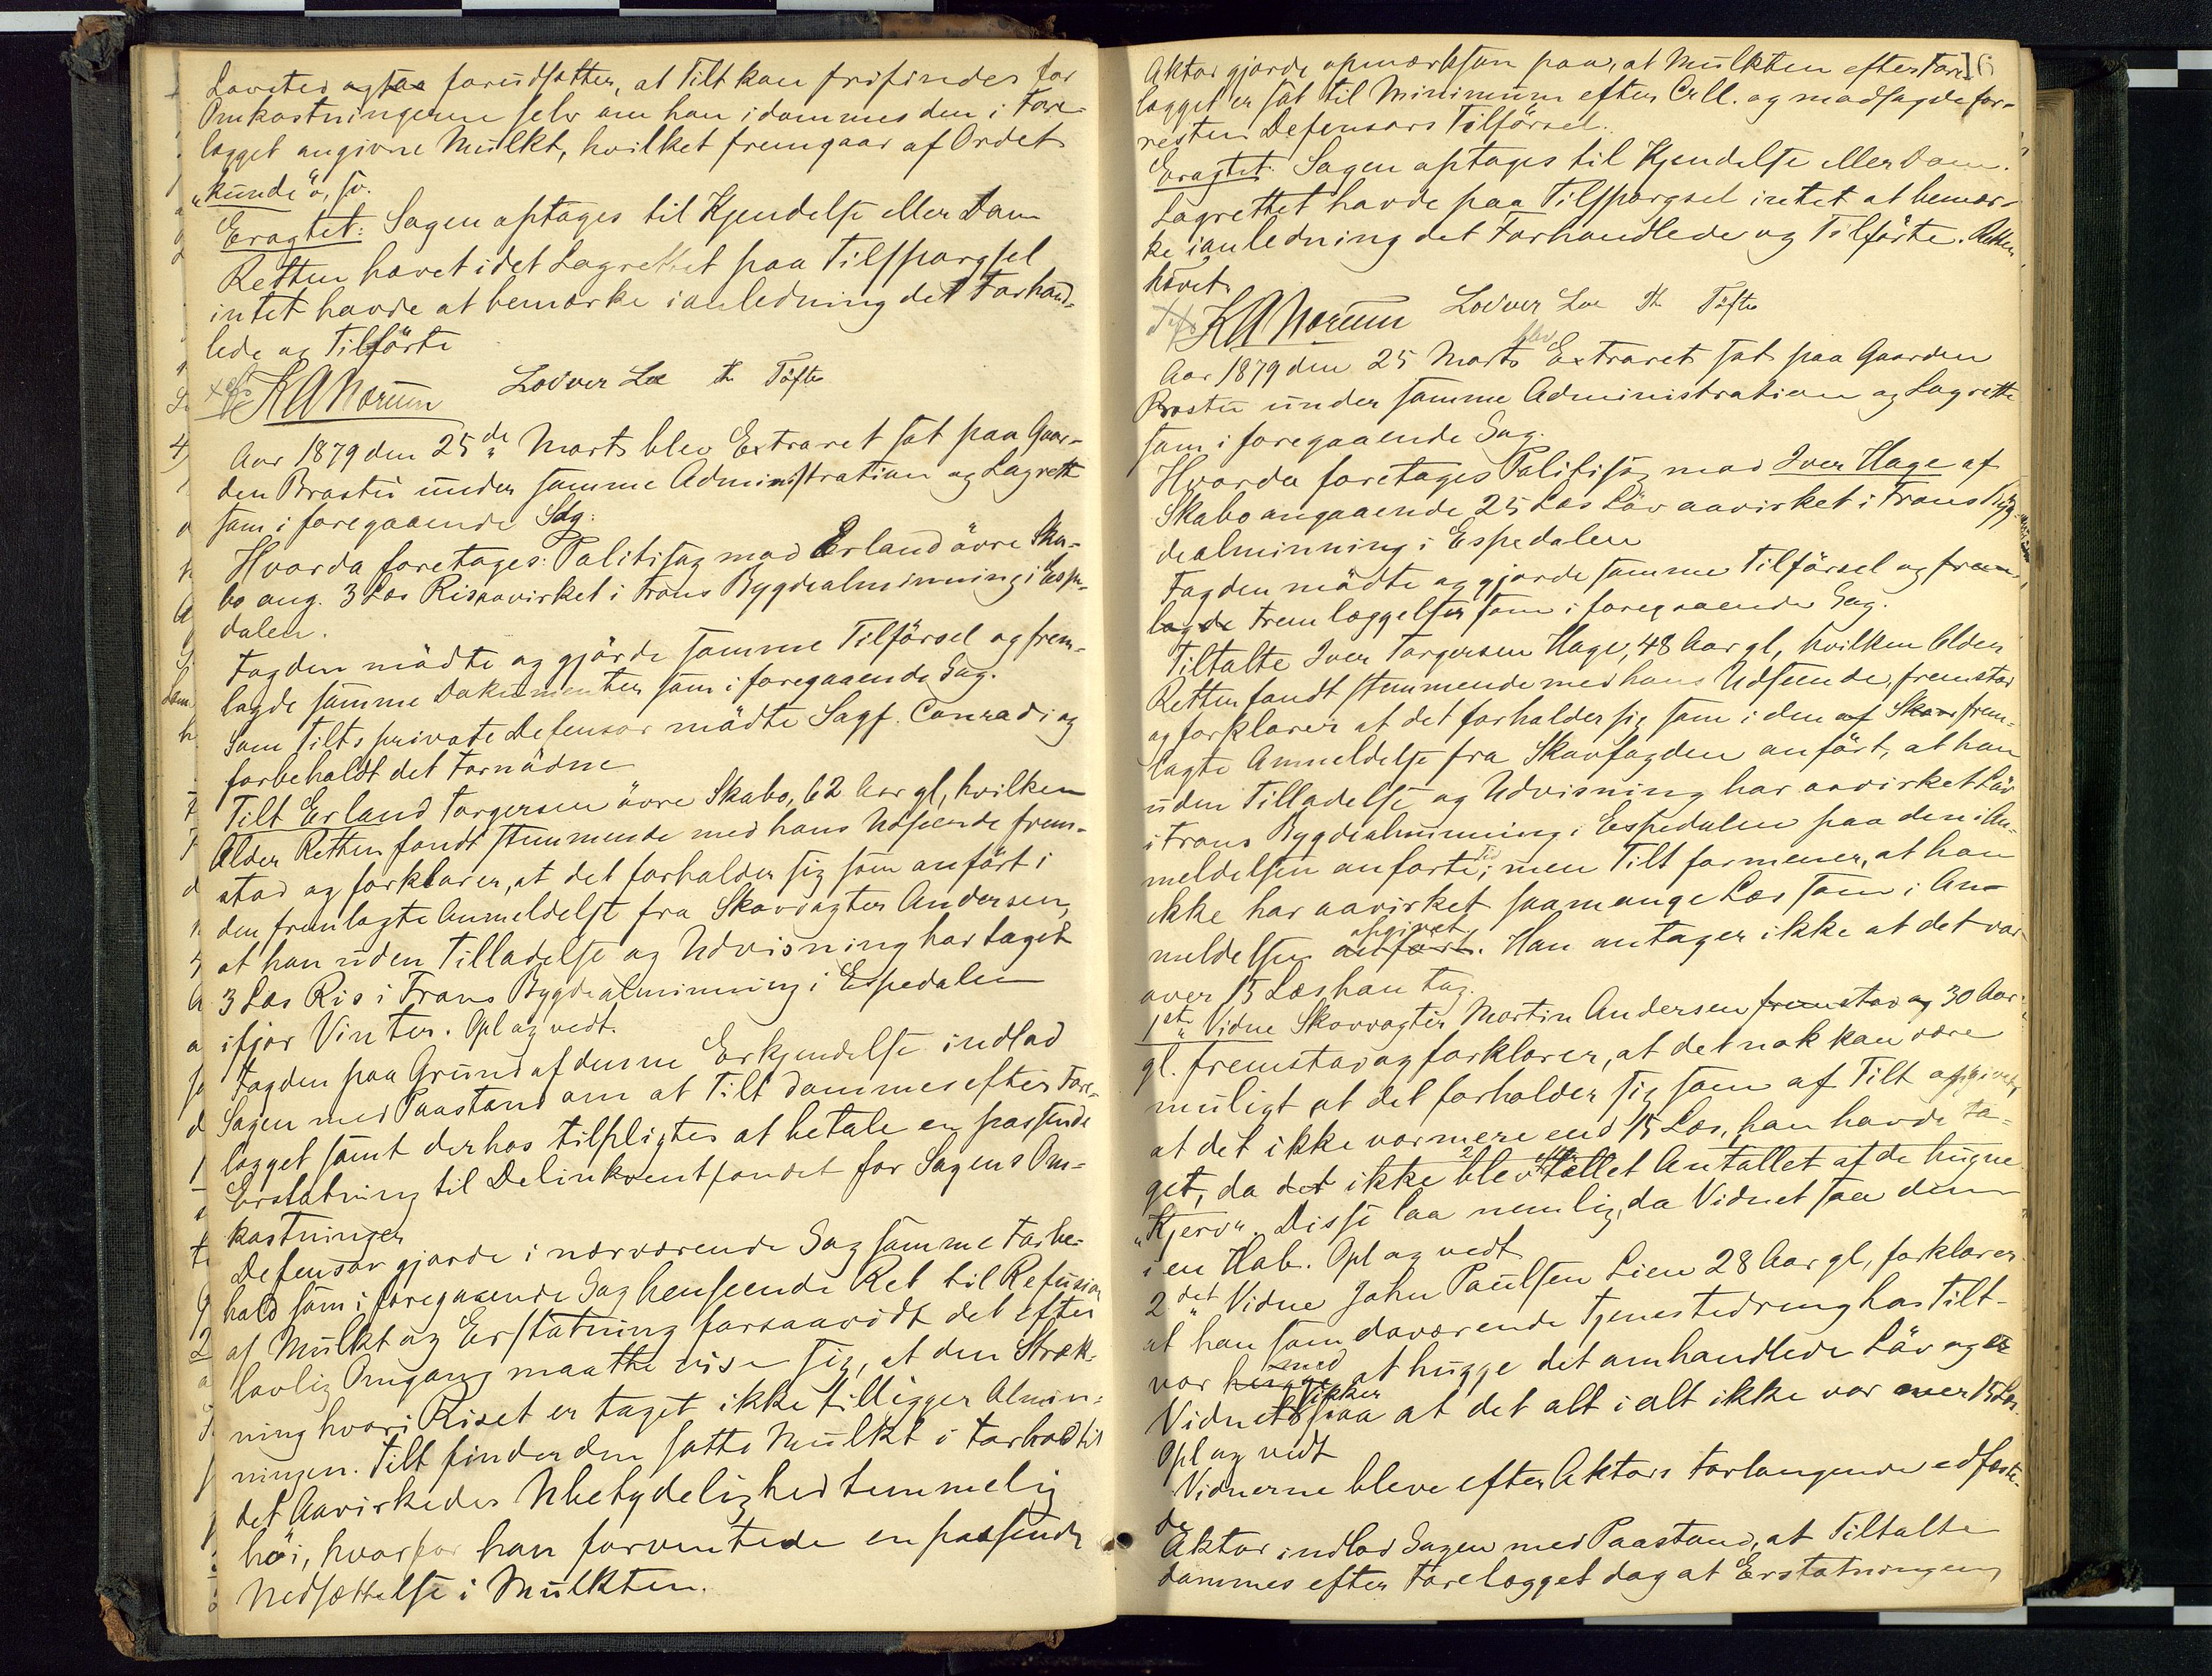 Lovsted ogsaa forudsætter, at Tilt kan frifindes for
Omkostningerne selv om han idømmes den i Fore-
lægget angivne Mulkt, hvilket fremgaar af Ordet
"kunde" o, sv.
Eragtet: Sagen optages til Kjendelse eller Dom
Retten hævet idet Lagrettet paa Tilspørgsel
intet havde at bemærke i anledning det Forhand-
lede og Tilførte
K A Nørum Lodver Loe Th Tøfte
Aar 1879 den 25de Marts blev Extraret sat paa Gaar-
den Brostu under samme Administration og Lagrette
som i foregaaende Sag:
Hvorda foretages: Politisag mod Erland øvre Ska-
bo ang. 3 Læs Ris aavirket i Frons Bygdealminning i Espe-
dalen.
Fogden mødte og gjørde samme Tilførsel og frem-
lagde samme Dokumenter som i foregaaende Sag.
Som Tilts private Defensor mødte Sagf. Conradi og
forbeholdt det Fornødne
Tilt Erland Torgersen øvre Skabo, 62 Aar gl, hvilken
Alder Retten fandt stemmende med hans Udseende frem-
stod og forklarer, at det forholder sig som anført i
den fremlagte Anmeldelse fra Skovvogter Andersen,
at han uden Tilladelse og Udvisning har taget
3 Læs Ris i Frons Bygdealminning i Espedalen
ifjor Vinter. Opl og vedt.
Fogden paa Grund af denne Erkjendelse indlod
Sagen med Paastand om at Tilt dømmes efter Fore-
lægget samt derhos tilpligtes at betale en passende
Erstatning til Delinkventfondet for Sagens Om-
kostninger
Defensor gjorde i nærværende Sag samme Forbe-
hold som i foregaaende Sag henseende Ret til Refusion
af Mulkt og Erstatning forsaavidt det efter
lovlig Omgang maatte vise sig, at den Stræk-
ning hvori Riset er taget ikke tilligger Almin-
ningen. Tilt finder den satte Mulkt i Forhold til
det Aavirkedes Ubetydelighed temmelig
høi, hvorfor han forventede en passende
Nedsættelse i Mulkten.
Aktor gjorde opmærksom paa, at Mulkten efter Fore-
lægget er sat til Minimum efter Crll. og modsagde for-
resten Defensors Tilførsel.
Eragtet: Sagen optages til Kjendelse eller Dom.
Lagrettet havde paa Tilspørgsel intet at bemær-
ke i anledning det Forhandlede og Tilførte. Retten
hævet
K A Nørum Lodver Loe Th Tøfte
Aar 1879 den 25 Marts blev Extraret sat paa Gaarden
Brostu under samme Administration og Lagrette
som i foregaaende Sag.
Hvorda foretages Politisag mod Iver Hage af
Skabo angaaende 25 Læs Løv aavirket i Frons Byg-
dealminning i Espedalen
Fogden mødte og gjorde samme Tilførsel og frem-
lagde Fremlæggelser som i foregaaende Sag.
Tiltalte Iver Torgersen Hage, 48 Aar gl, hvilken Alder
Retten fandt stemmende med hans Udseende, fremstod
og forklarer at det forholder sig som i den af Skov frem-
lagte Anmeldelse fra Skovfogden anført, at han
uden Tilladelse og Udvisning har aavirket Løv
i Frons Bygdealminning i Espedalen paa den i An-
meldelsen anførte Tid; men Tilt formener, at han
ikke har aavirket saamange Læs som i An-
meldelsen anført opgivet. Han antager ikke at det var
over 15 Læs han tog.
1ste Vidne Skovvogter Martin Andersen fremstod og 30 Aar
gl. fremstod og forklarer, at det nok kan være
muligt at det forholder sig som af Tilt opgivet,
at det ikke var mere end 15 Læs, han havde ta-
get, da det ikke blev tællet Antallet af de hugne
"Kjerv". Disse laa nemlig, da Vidnet saa dem
i en Hob. Opl og vedt
2det Vidne John Paulsen Lien 28 Aar gl, forklarer
at han som daværende Tjenestedreng hos Tilt-
var med at hugge det omhandlede Løv og er
Vidnet sikker paa at det alt i alt ikke var over 15 Læs.
Opl og vedt
Vidnerne bleve efter Aktors Forlangende edfæste-
de
Aktor indlod Sagen med Paastand, at Tiltalte
dømmes efter Forelægget dog at Erstatningen